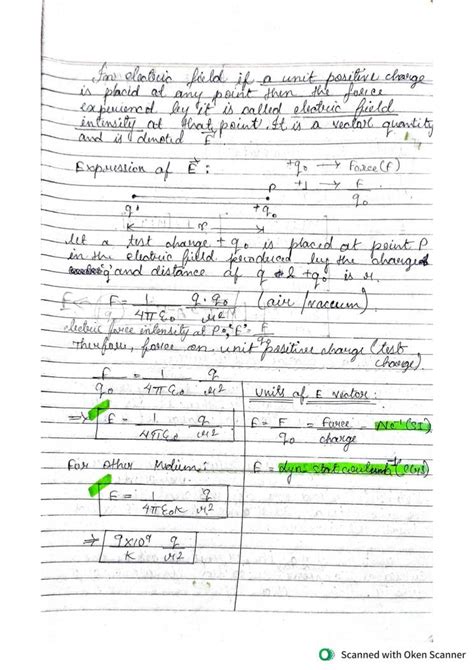 In electric field if a unit positive charge
is placid at any point then the force
experienced by it is called electric field
intensity at that point. It is a vector quantity
and is denoted E.
Expression of E :
+q₀ → Force (F)
+1 → F/q₀
P
q +q₀
r
let a test charge + q₀ is placed at point P
in the electric field produced by the charge
q and distance of q & +q₀ is r.
F = 1/4πε₀ q·q₀/r² (air / vaccum)
electric force intensity at P F/q₀
Therefore, force on unit positive charge (test
charge).
F/q₀ = 1/4πε₀ q/r²
⇒ E = 1/4πε₀ q/r²
For other Medium:
E = 1/4πε₀K q/r²
⇒ 9×10⁹/K q/r²
Units of E vector:
E = F/q₀ = Force/charge = Nc⁻¹ (SI)
E = dyn-statcoulomb⁻¹ (CGS)
Scanned with Oken Scanner